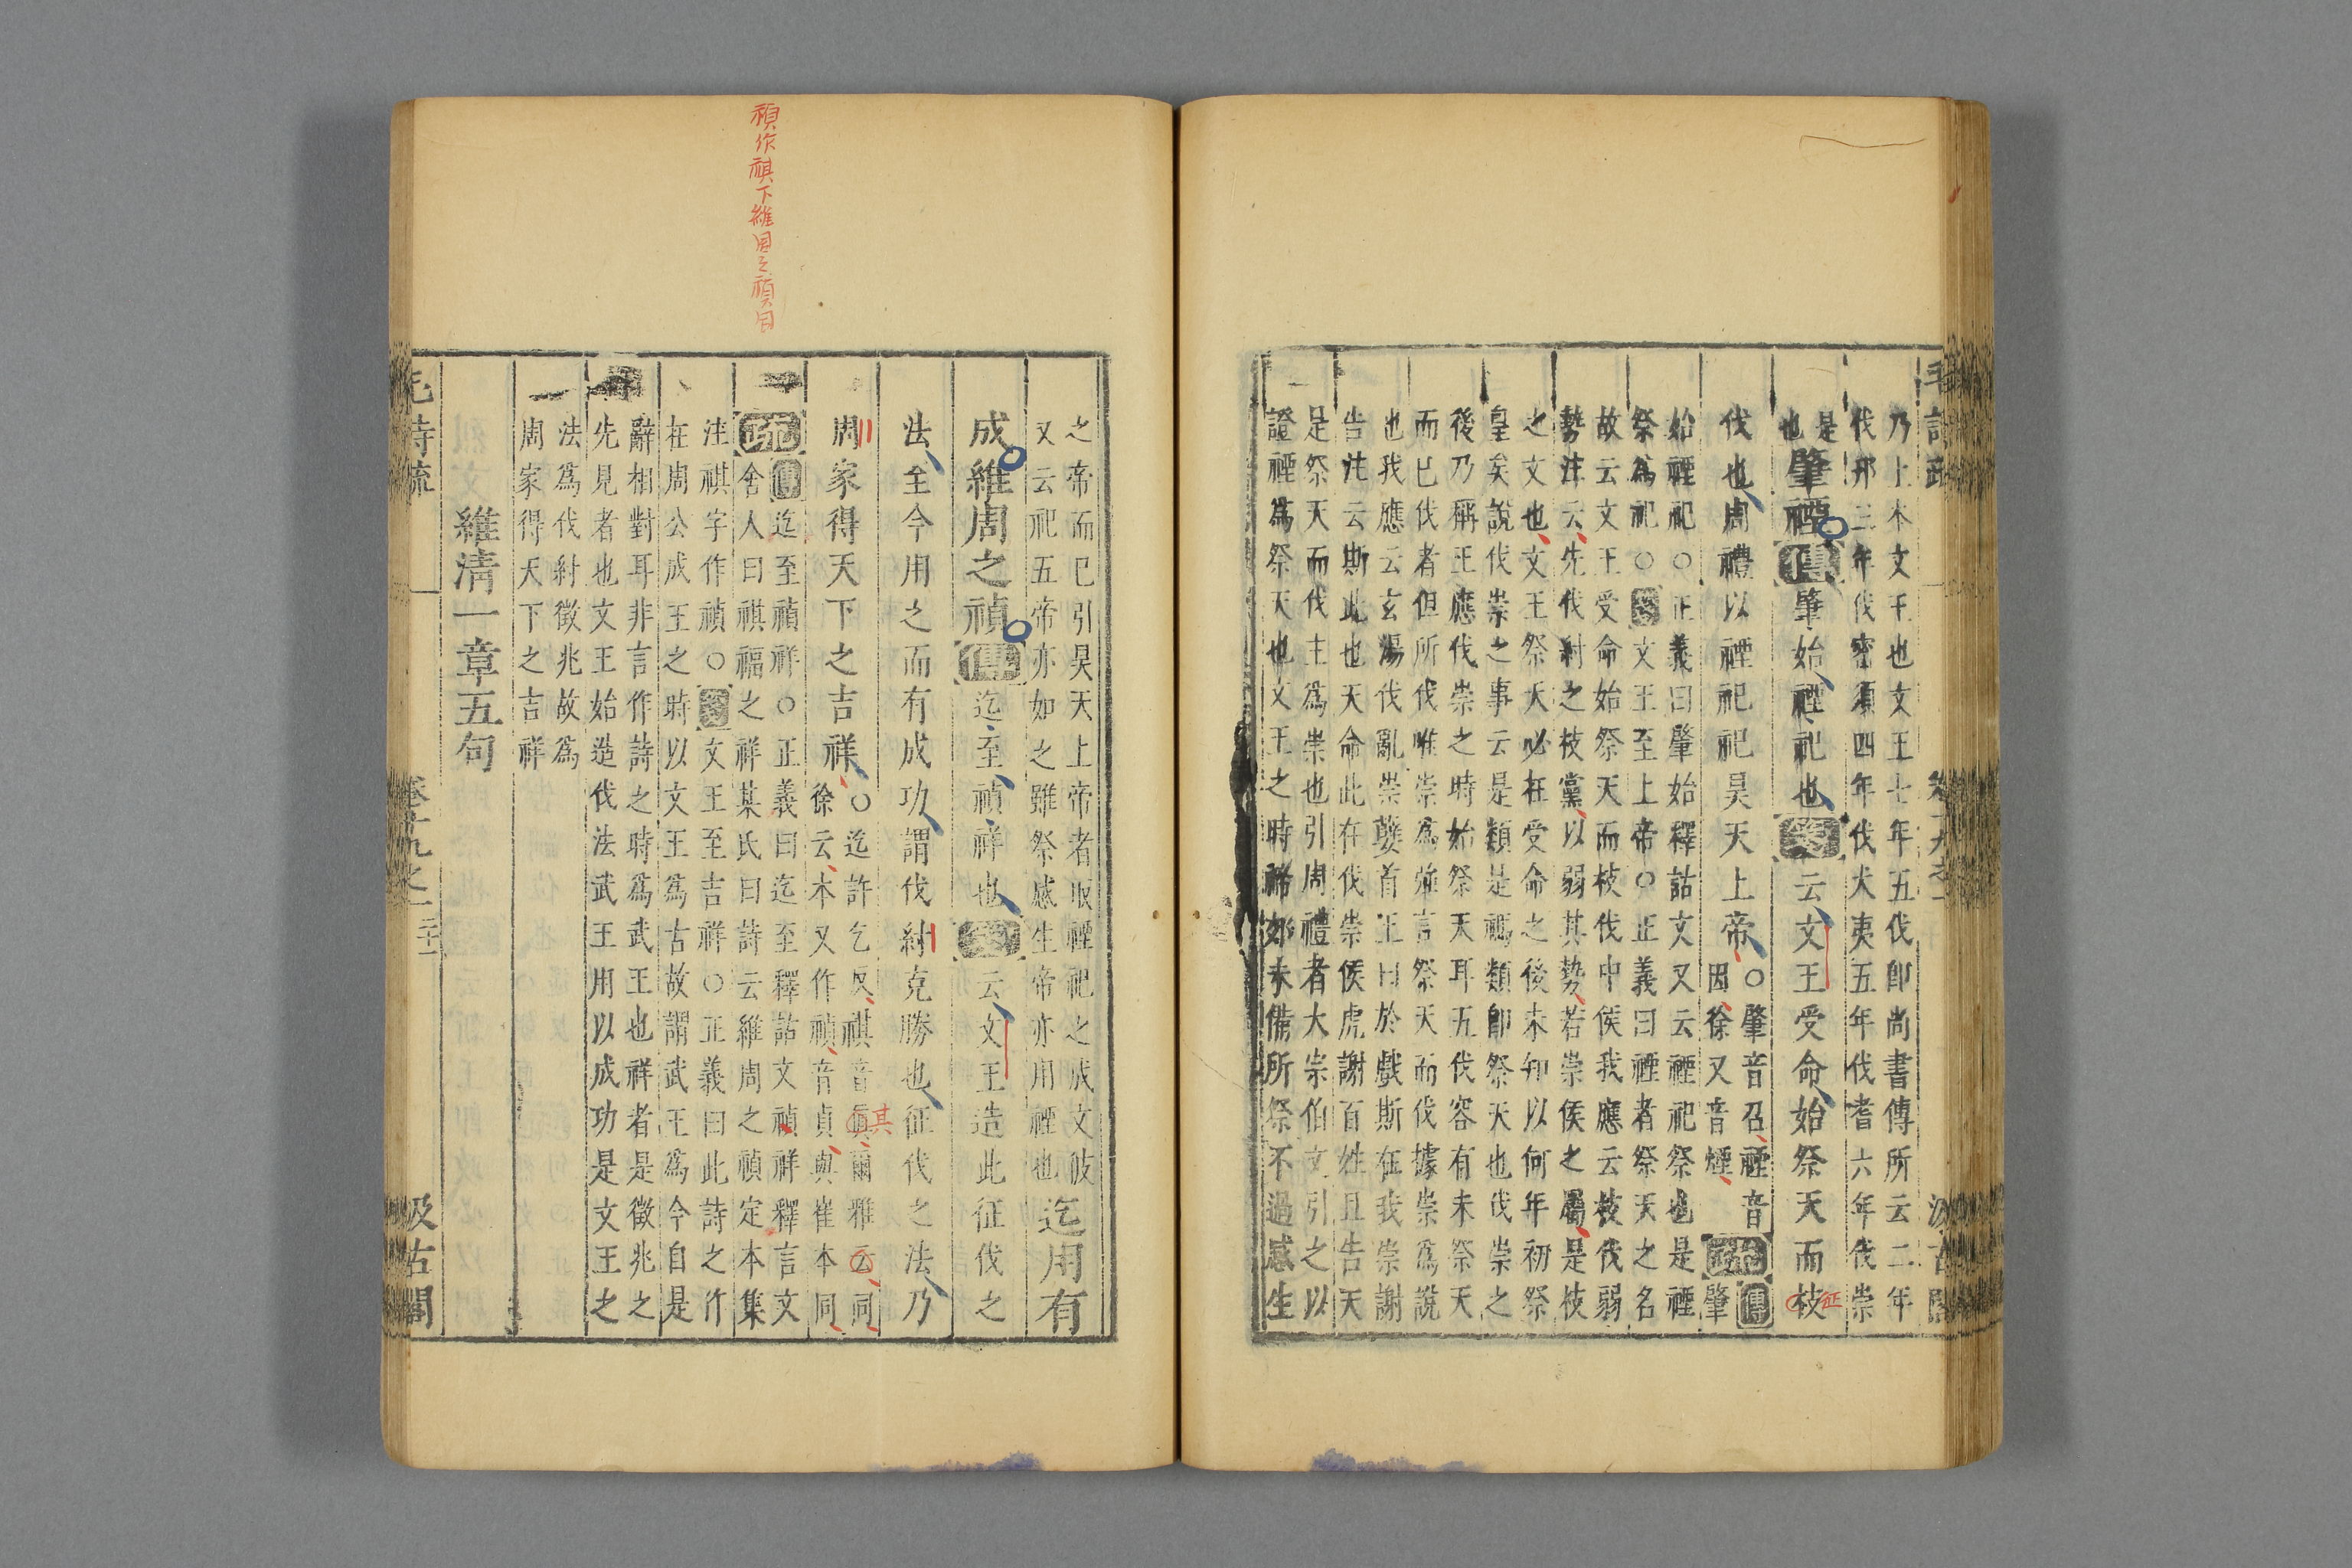 毛詩疏
卷十九之一
汲古閣
乃上本文王也文王七年五伐卽尚書傳所云二年
伐邘三年伐密須四年伐犬夷五年伐耆六年伐崇
是
也
肇禋傳肇始禋祀也箋云文王受命始祭天而枝
征
伐也周禮以禋祀祀昊天上帝
○肇音召禋音
因徐又音煙
疏
傳
肇
始禋祀○正義曰肇始釋詁文又云禋祀祭也是禋
祭爲祀○箋文王至上帝○正義曰禋者祭天之名
故云文王受命始祭天而枝伐中侯我應云枝伐弱
勢注云先伐紂之枝黨以弱其勢若崇侯之屬是枝
之文也文王祭天必在受命之後未知以何年初祭
皇矣說伐崇之事云是類是禡類卽祭天也伐崇之
後乃稱王應伐崇之時始祭天耳五伐容有未祭天
而已伐者但所伐唯崇爲強言祭天而伐據崇爲說
也我應云玄湯伐亂崇孽首王曰於戲斯在我崇謝
告注云斯此也天命此在伐崇侯虎謝百姓且告天
是祭天而伐主爲崇也引周禮者大宗伯文引之以
證禋爲祭天也文王之時禘郊未備所祭不過感生
之帝而已引昊天上帝者取禋祀之成文彼
又云祀五帝亦如之雖祭感生帝亦用禋也
迄用有
成維周之禎傳迄至禎祥也箋云文王造此征伐之
法至今用之而有成功謂伐紂克勝也征伐之法乃
周家得天下之吉祥
○迄許乞反祺音眞爾雅云同
徐云本又作禎音貞與崔本同
其
疏
傳迄至禎祥○正義曰迄至釋詁文禎祥釋言文
舍人曰祺福之祥某氏曰詩云維周之禎定本集
注祺字作禎○箋文王至吉祥○正義曰此詩之作
在周公成王之時以文王爲古故謂武王爲今自是
辭相對耳非言作詩之時爲武王也祥者是徵兆之
先見者也文王始造伐法武王用以成功是文王之
法爲伐紂徵兆故爲
周家得天下之吉祥
維清一章五句
毛詩疏
卷十九之一
二十一
汲古閣
禎作祺下維周之禎同